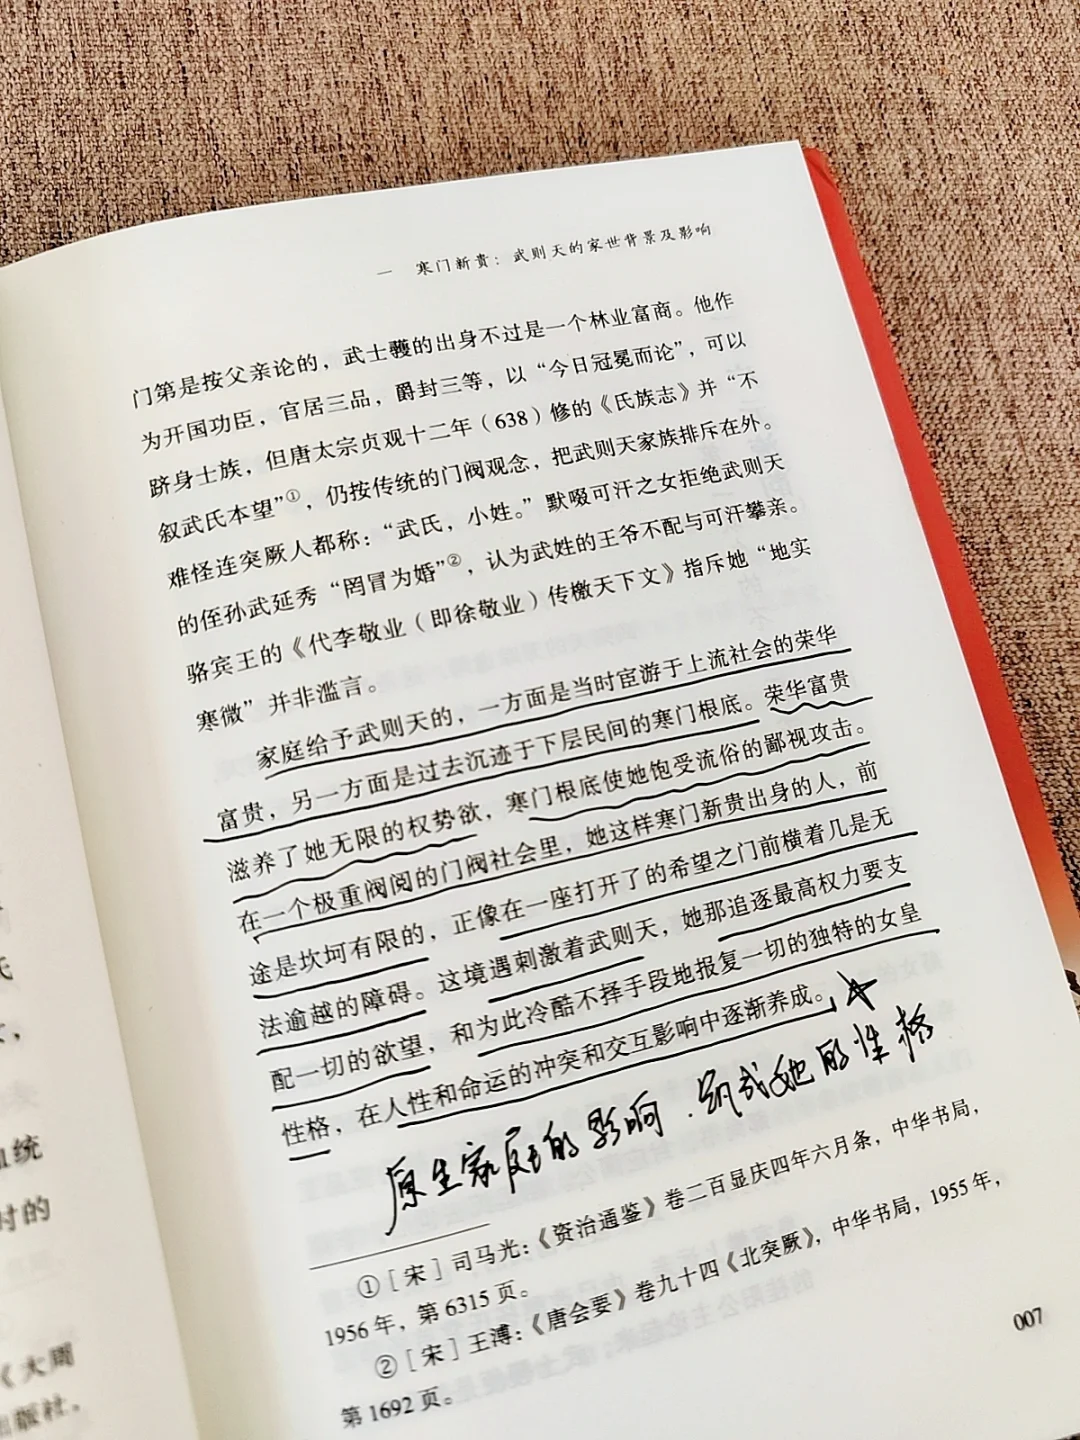 一 寒门新贵：武则天的家世背景及影响
门第是按父亲论的，武士彟的出身不过是一个林业富商。他作
为开国功臣，官居三品，爵封三等，以“今日冠冕而论”，可以
跻身士族，但唐太宗贞观十二年（638）修的《氏族志》并“不
叙武氏本望”①，仍按传统的门阀观念，把武则天家族排斥在外。
难怪连突厥人都称：“武氏，小姓。”默啜可汗之女拒绝武则天
的侄孙武延秀“罔冒为婚”②，认为武姓的王爷不配与可汗攀亲。
骆宾王的《代李敬业（即徐敬业）传檄天下文》指斥她“地实
寒微”并非滥言。
家庭给予武则天的，一方面是当时宦游于上流社会的荣华
富贵，另一方面是过去沉迹于下层民间的寒门根底。荣华富贵
滋养了她无限的权势欲，寒门根底使她饱受流俗的鄙视攻击。
在一个极重阀阅的门阀社会里，她这样寒门新贵出身的人，前
途是坎坷有限的，正像在一座打开了的希望之门前横着几是无
法逾越的障碍。这境遇刺激着武则天，她那追逐最高权力要支
配一切的欲望，和为此冷酷不择手段地报复一切的独特的女皇
性格，在人性和命运的冲突和交互影响中逐渐养成。
原生家庭的影响，筑成她的性格
①［宋］司马光：《资治通鉴》卷二百显庆四年六月条，中华书局，
1956年，第6315页。
②［宋］王溥：《唐会要》卷九十四《北突厥》，中华书局，1955年，
第1692页。
007
统
时的
《大周
出版社，